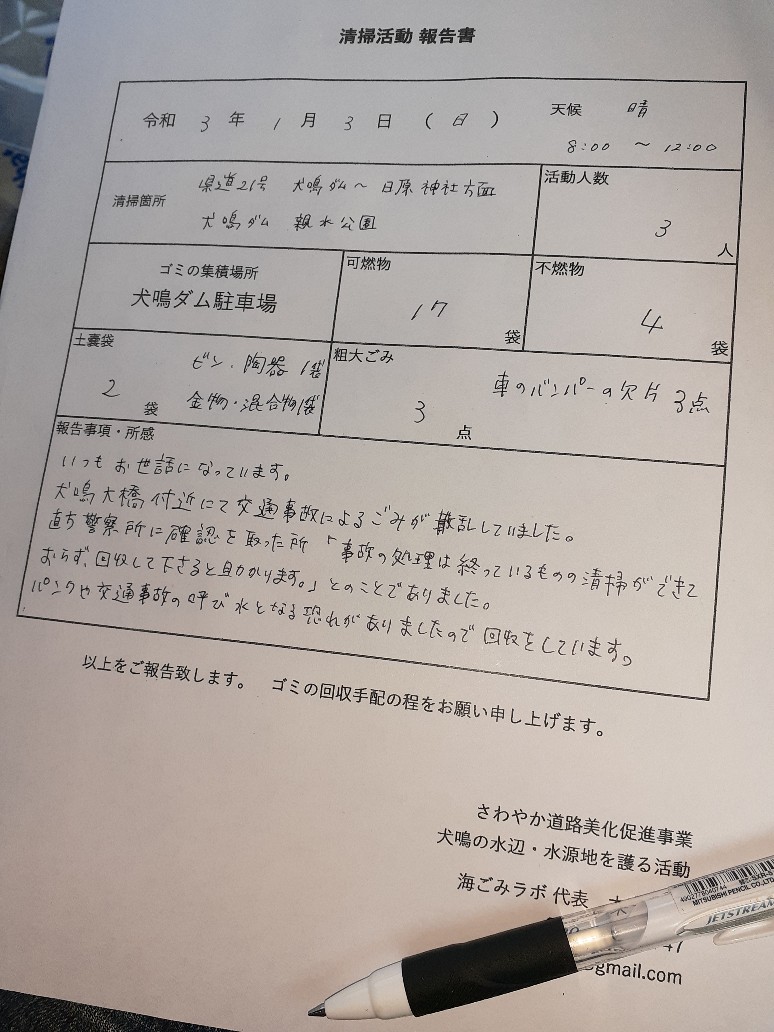 清掃活動 報告書
令和 3 年 1 月 3 日 ( 日 )
天候 晴
8:00 ~ 12:00
清掃箇所
県道21号 犬鳴ダム~日原神社方面
犬鳴ダム 親水公園
活動人数
3 人
ゴミの集積場所
犬鳴ダム駐車場
可燃物
17 袋
不燃物
4 袋
土嚢袋
2 袋
ビン・陶器 1袋
金物・混合物1袋
粗大ごみ
3 点
車のバンパーの欠片 3点
報告事項・所感
いつもお世話になっています。
犬鳴大橋付近にて交通事故によるごみが散乱していました。
直方警察所に確認を取った所「事故の処理は終っているものの清掃ができて
おらず、回収して下さると助かります。」とのことでありました。
パンクや交通事故の呼び水となる恐れがありましたので回収をしています。
以上をご報告致します。 ゴミの回収手配の程をお願い申し上げます。
さわやか道路美化促進事業
犬鳴の水辺・水源地を護る活動
海ごみラボ 代表
47
@gmail.com
4902778040744
MITSUBISHI PENCIL CO.,LTD.
JETSTREAM